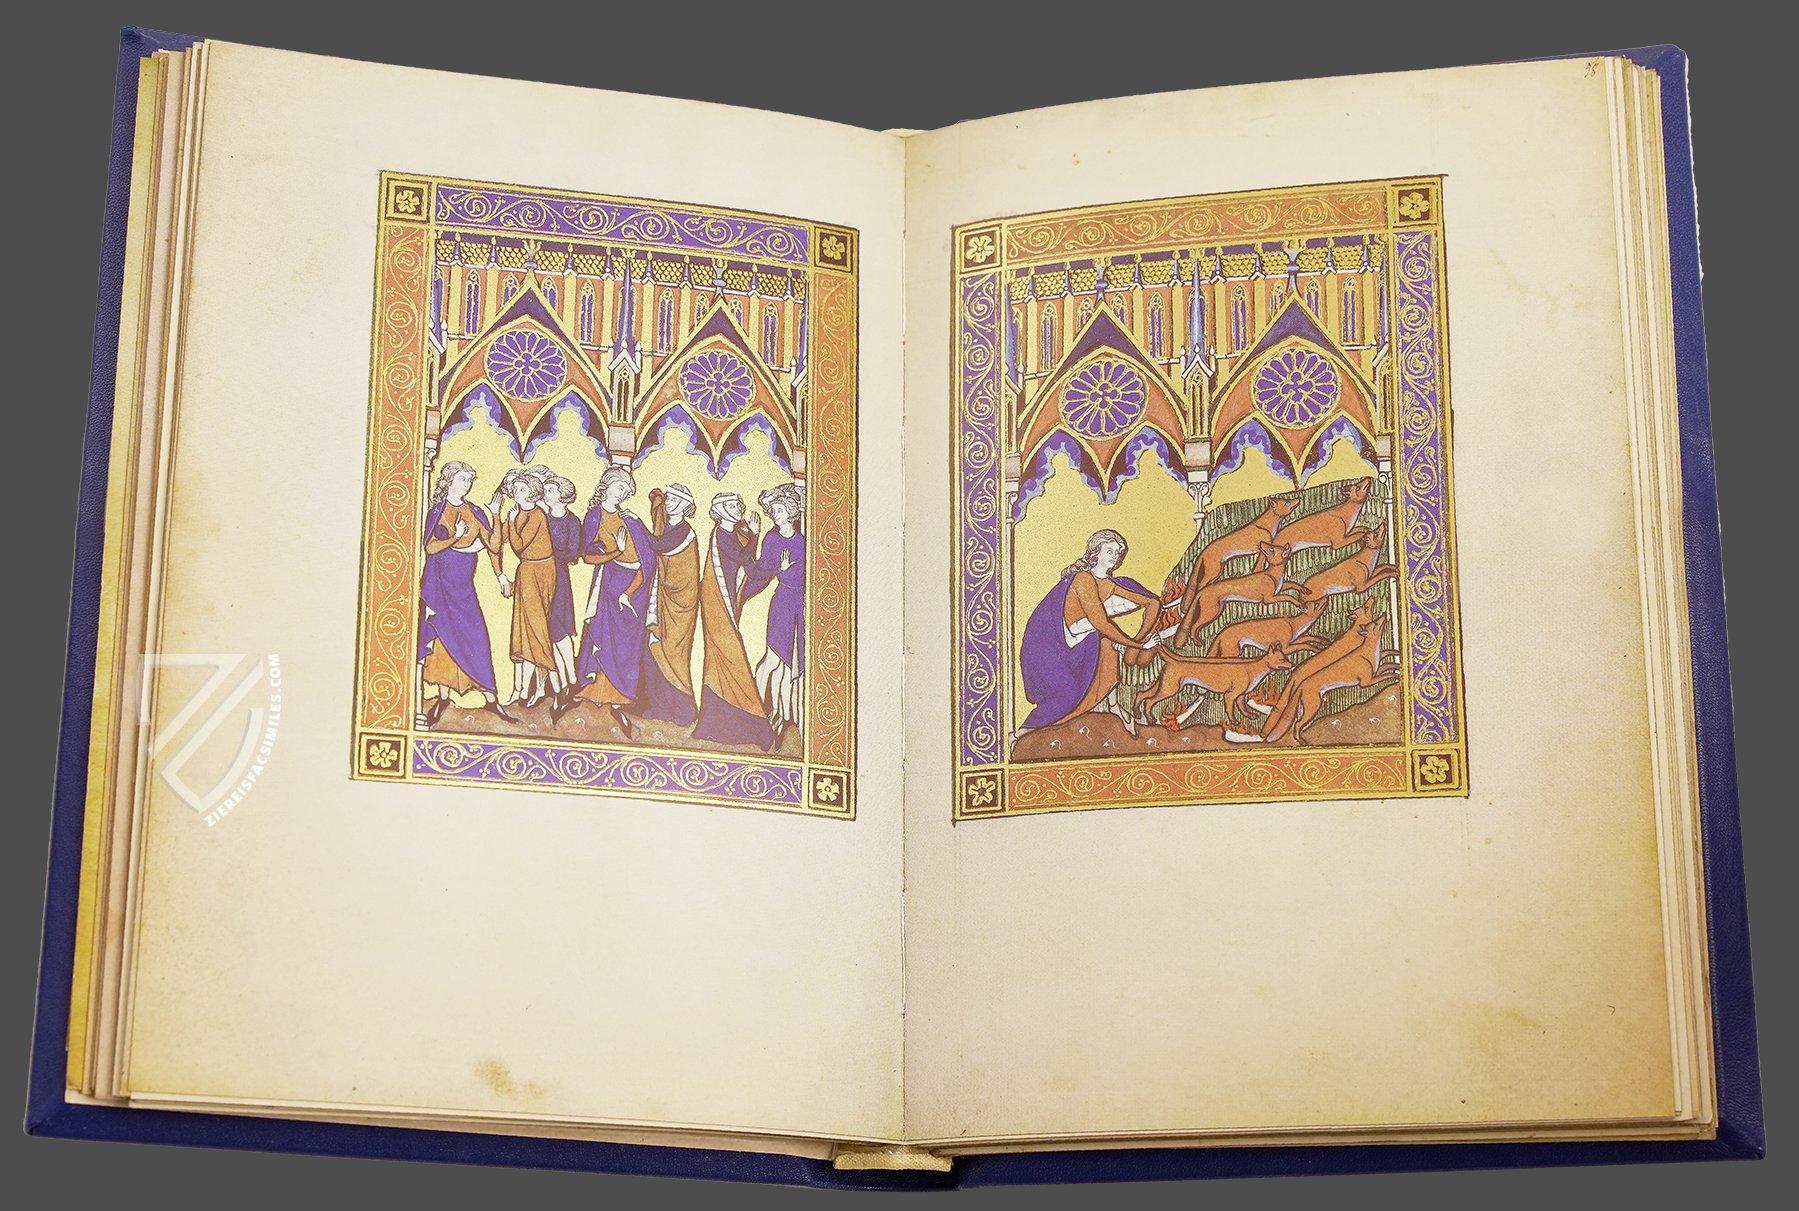 58
ZIEREISFACSIMILES.COM